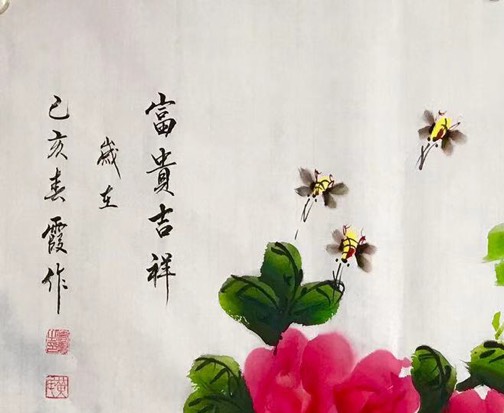 富貴吉祥
歲在
己亥春霞作